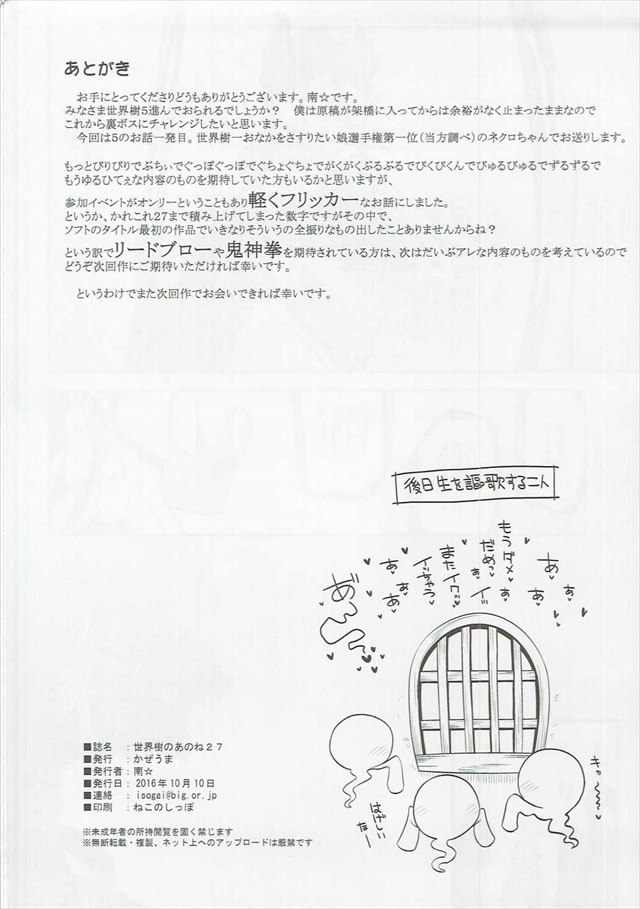 あとがき
　お手にとってくださりどうもありがとうございます。南☆です。
みなさま世界樹5進んでおられるでしょうか？　僕は原稿が架橋に入ってからは余裕がなく止まったままなので
これから裏ボスにチャレンジしたいと思います。
　今回は5のお話一発目。世界樹一おなかをさすりたい娘選手権第一位(当方調べ)のネクロちゃんでお送りします。
もっとびりびりでぶちぃいでぐっぽぐっぽでぐちょぐちょでがくがくぷるぷるでびくびくんでびゅるびゅるでずるずるで
もうゆるひてぇな内容のものを期待していた方もいるかと思いますが、
参加イベントがオンリーということもあり軽くフリッカーなお話にしました。
というか、かれこれ27まで積み上げてしまった数字ですがその中で、
ソフトのタイトル最初の作品でいきなりそういうの全振りなもの出したことありませんからね？
という訳でリードブローや鬼神拳を期待されている方は、次はだいぶアレな内容のものを考えているので
どうぞ次回作にご期待いただければ幸いです。
　というわけでまた次回作でお会いできれば幸いです。
後日生を謳歌する二人
あぁ♥
あ♥
もうダメ♥
ぁ♥
だめっ♥
ぁ
イッ
またイクッ♥
イッちゃう
あ♥
ぁ♥
あ♥
あ゛ん〜♥
キャ〜〜〜
はげしいなー
■誌名　：世界樹のあのね２７
■発行　：かぜうま
■発行者：南☆
■発行日：2016年10月10日
■連絡　：isogai@big.or.jp
■印刷　：ねこのしっぽ
※未成年者の所持閲覧を固く禁じます
※無断転載・複製、ネット上へのアップロードは厳禁です